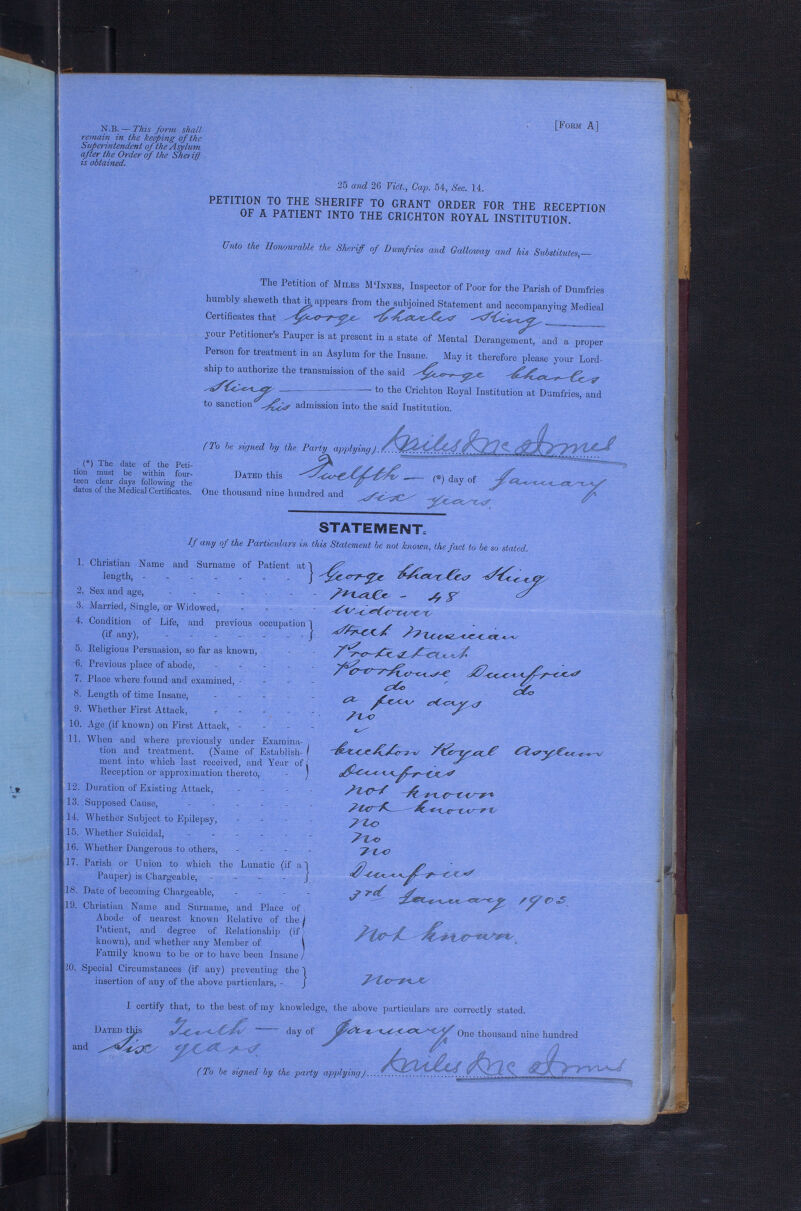 N.B. — This form shall
remain in the keeping of the
Superintendent of the Asylum
after the Order of the Sheriff
is obtained.
[FORM A]
25 and 26 Vict., Cap. 54, Sec. 14.
PETITION TO THE SHERIFF TO GRANT ORDER FOR THE RECEPTION
OF A PATIENT INTO THE CRICHTON ROYAL INSTITUTION.
Unto the Honourable the Sheriff of Dumfries and Galloway and his Substitutes,—
The Petition of MILES M'INNES, Inspector of Poor for the Parish of Dumfries
humbly sheweth that it appears from the subjoined Statement and accompanying Medical
Certificates that George Charles King
your Petitioner's Pauper is at present in a state of Mental Derangement, and a proper
Person for treatment in an Asylum for the Insane. May it therefore please your Lord-
ship to authorize the transmission of the said George Charles
King to the Crichton Royal Institution at Dumfries, and
to sanction his admission into the said Institution.
(To be signed by the Party applying) Miles McInnes
(*) The date of the Peti-
tion must be within four-
teen clear days following the
dates of the Medical Certificates.
DATED this Twelfth — (*) day of January
One thousand nine hundred and six years.
STATEMENT.
If any of the Particulars in this Statement be not known, the fact to be so stated.
1. Christian Name and Surname of Patient at length, - George Charles King
2. Sex and age, - Male - 48
3. Married, Single, or Widowed, - Widower
4. Condition of Life, and previous occupation (if any), - Street Musician
5. Religious Persuasion, so far as known, - Protestant
6. Previous place of abode, - Poorhouse Dumfries
7. Place where found and examined, - do do
8. Length of time Insane, - a few days
9. Whether First Attack, - no
10. Age (if known) on First Attack, - "
11. When and where previously under Examina-
tion and treatment. (Name of Establish-
ment into which last received, and Year of
Reception or approximation thereto, - Crichton Royal Asylum
Dumfries
12. Duration of Existing Attack, - not known
13. Supposed Cause, - not known
14. Whether Subject to Epilepsy, - no
15. Whether Suicidal, - no
16. Whether Dangerous to others, - no
17. Parish or Union to which the Lunatic (if a
Pauper) is Chargeable, - Dumfries
18. Date of becoming Chargeable, - 3rd January 190
19. Christian Name and Surname, and Place of
Abode of nearest known Relative of the
Patient, and degree of Relationship (if
known), and whether any Member of
Family known to be or to have been Insane
Not known.
20. Special Circumstances (if any) preventing the
insertion of any of the above particulars, - none
I certify that, to the best of my knowledge, the above particulars are correctly stated.
DATED this Tenth — day of January One thousand nine hundred
and Six years.
(To be signed by the party applying) Miles McInnes